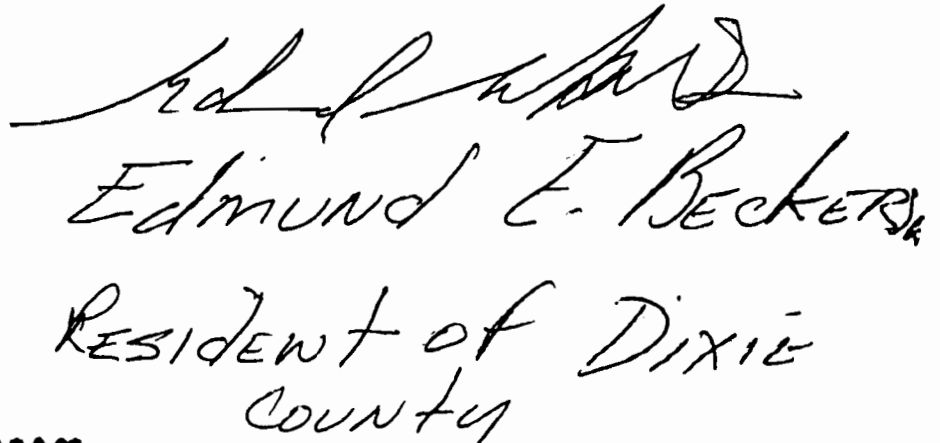 Edmund E. Becker
Resident of Dixie
County